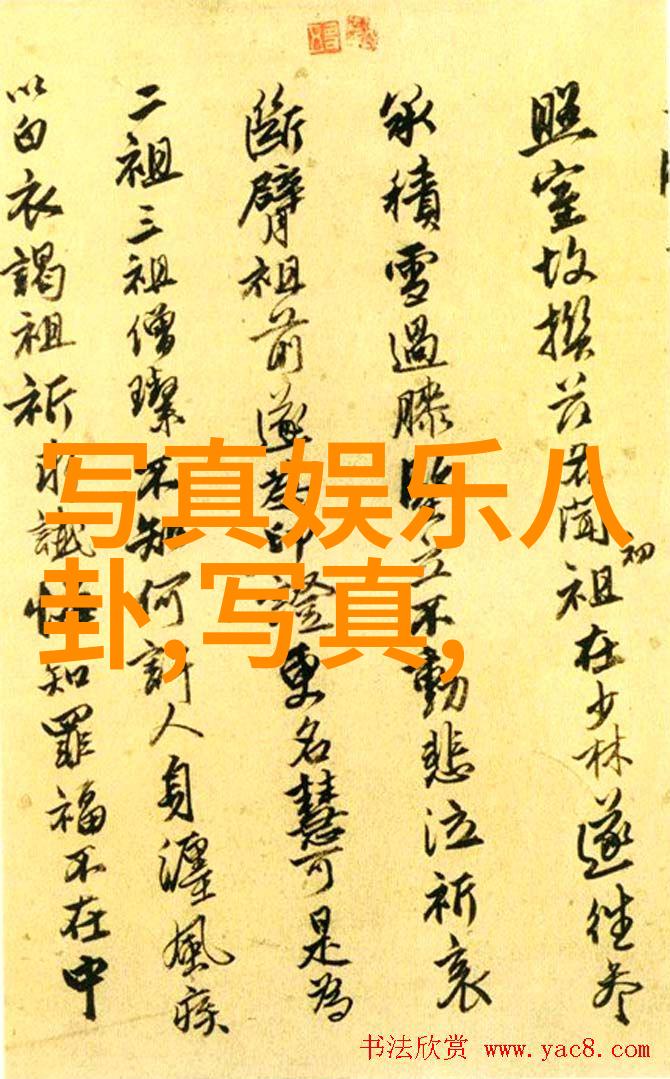 照室故撰茲名聞初祖在少林遂往參
承積雪過膝堅立不動悲泣祈哀
斷臂祖前遂為印證更名慧可是為
二祖三祖僧璨不知何許人身纏風疾
以白衣謁祖祈求懺悔知罪福不在中
写真娱乐八
卦,写真,
书法欣赏 www.yac8.com